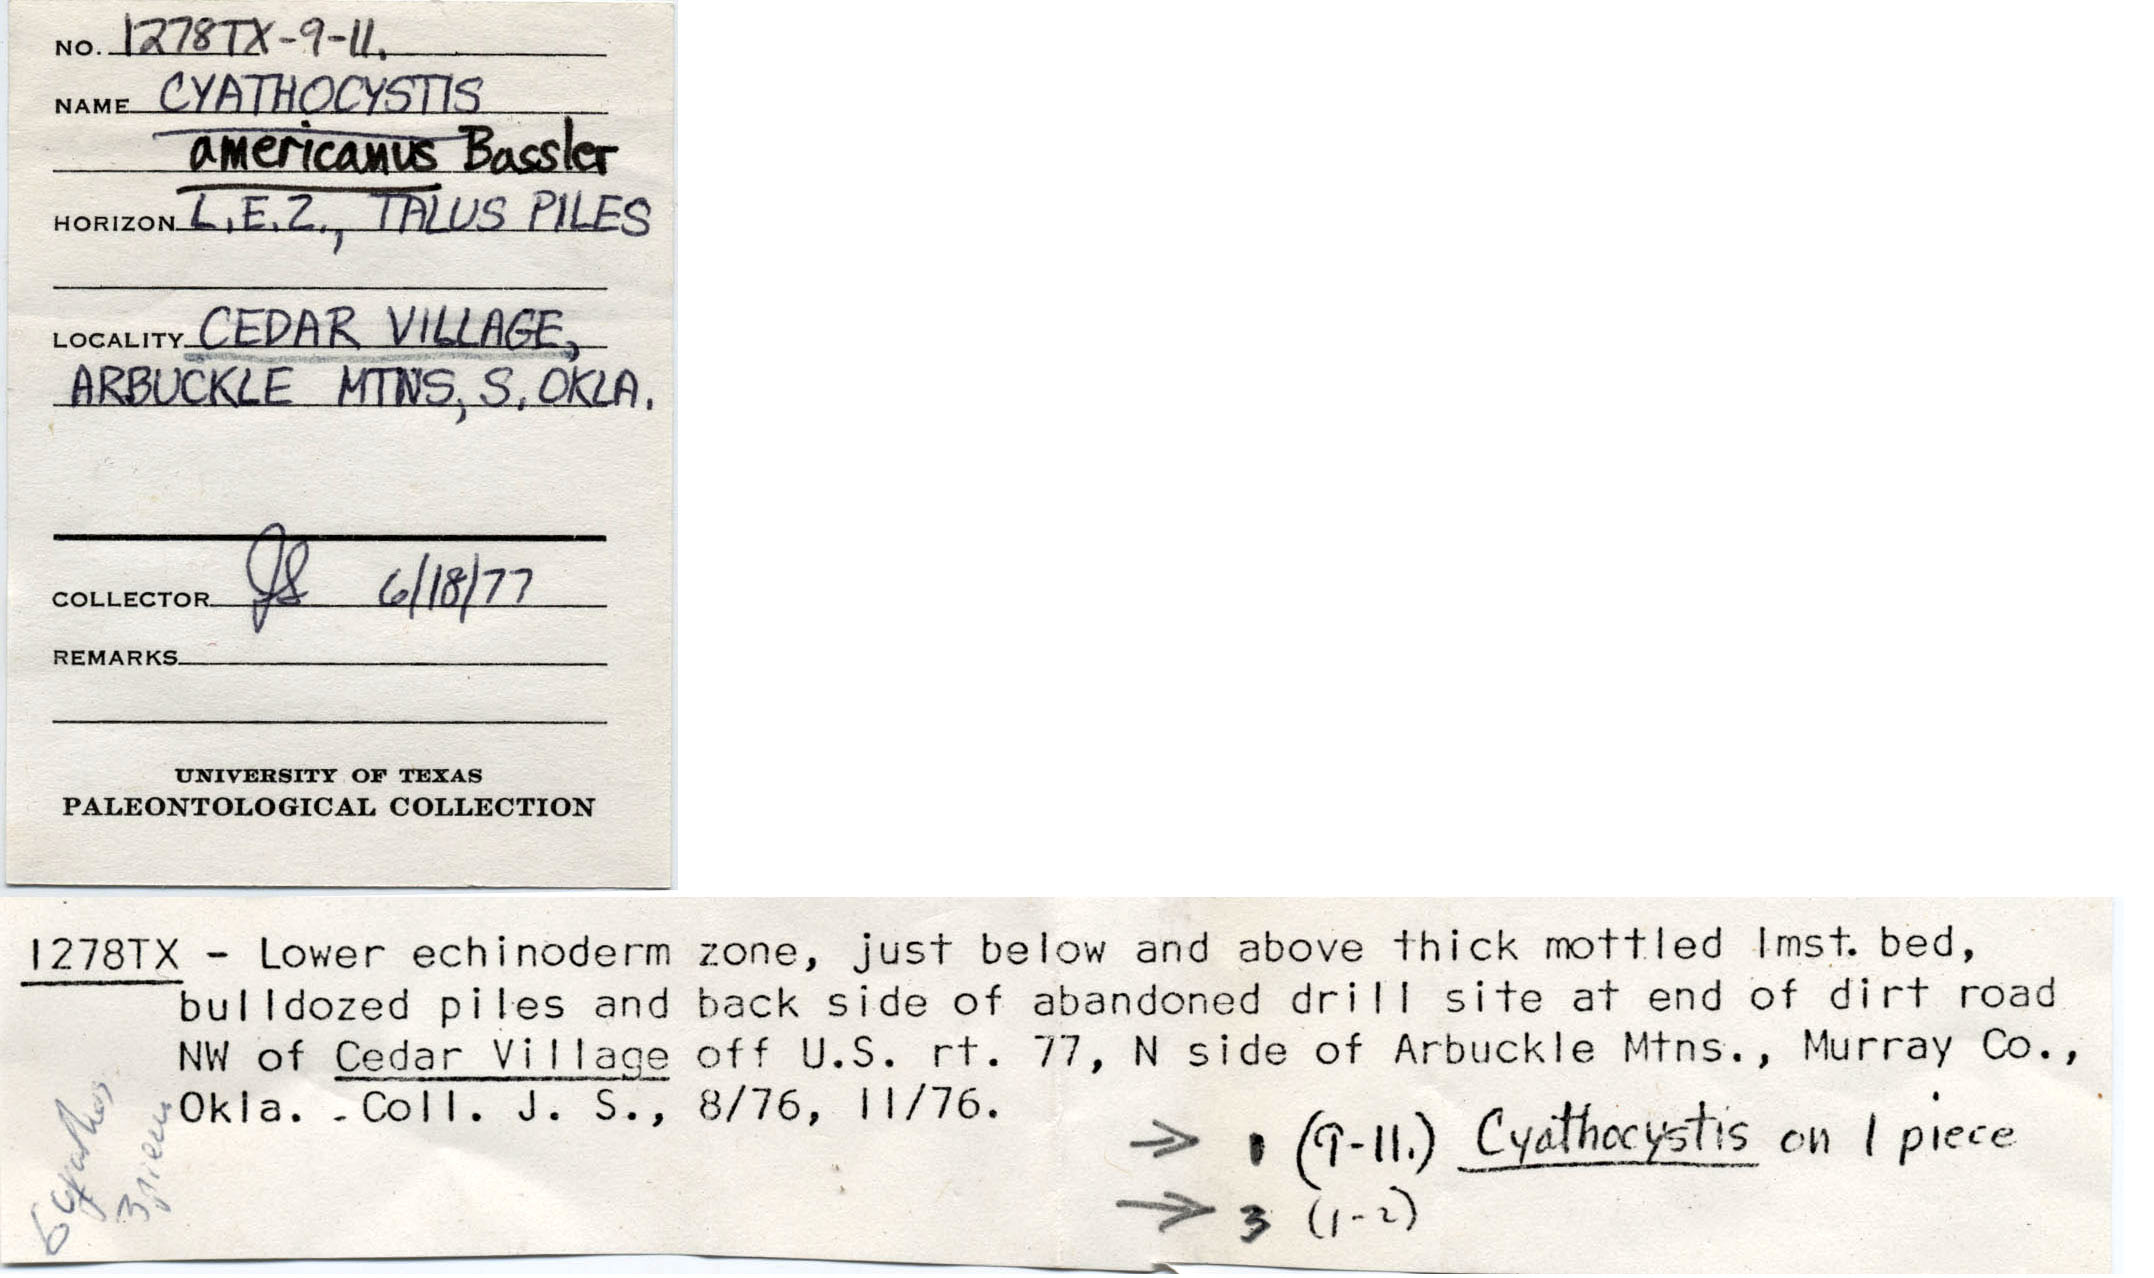 NO. 1278TX-9-11.
NAME CYATHOCYSTIS
americanus Bassler
HORIZON L.E.Z., TALUS PILES
LOCALITY CEDAR VILLAGE,
ARBUCKLE MTNS, S. OKLA.
COLLECTOR JS 6/18/77
REMARKS
UNIVERSITY OF TEXAS
PALEONTOLOGICAL COLLECTION
1278TX - Lower echinoderm zone, just below and above thick mottled lmst. bed,
bulldozed piles and back side of abandoned drill site at end of dirt road
NW of Cedar Village off U.S. rt. 77, N side of Arbuckle Mtns., Murray Co.,
Okla. - Coll. J. S., 8/76, 11/76.
→ 1 (9-11.) Cyathocystis on 1 piece
→ 3 (1-2)
6
3